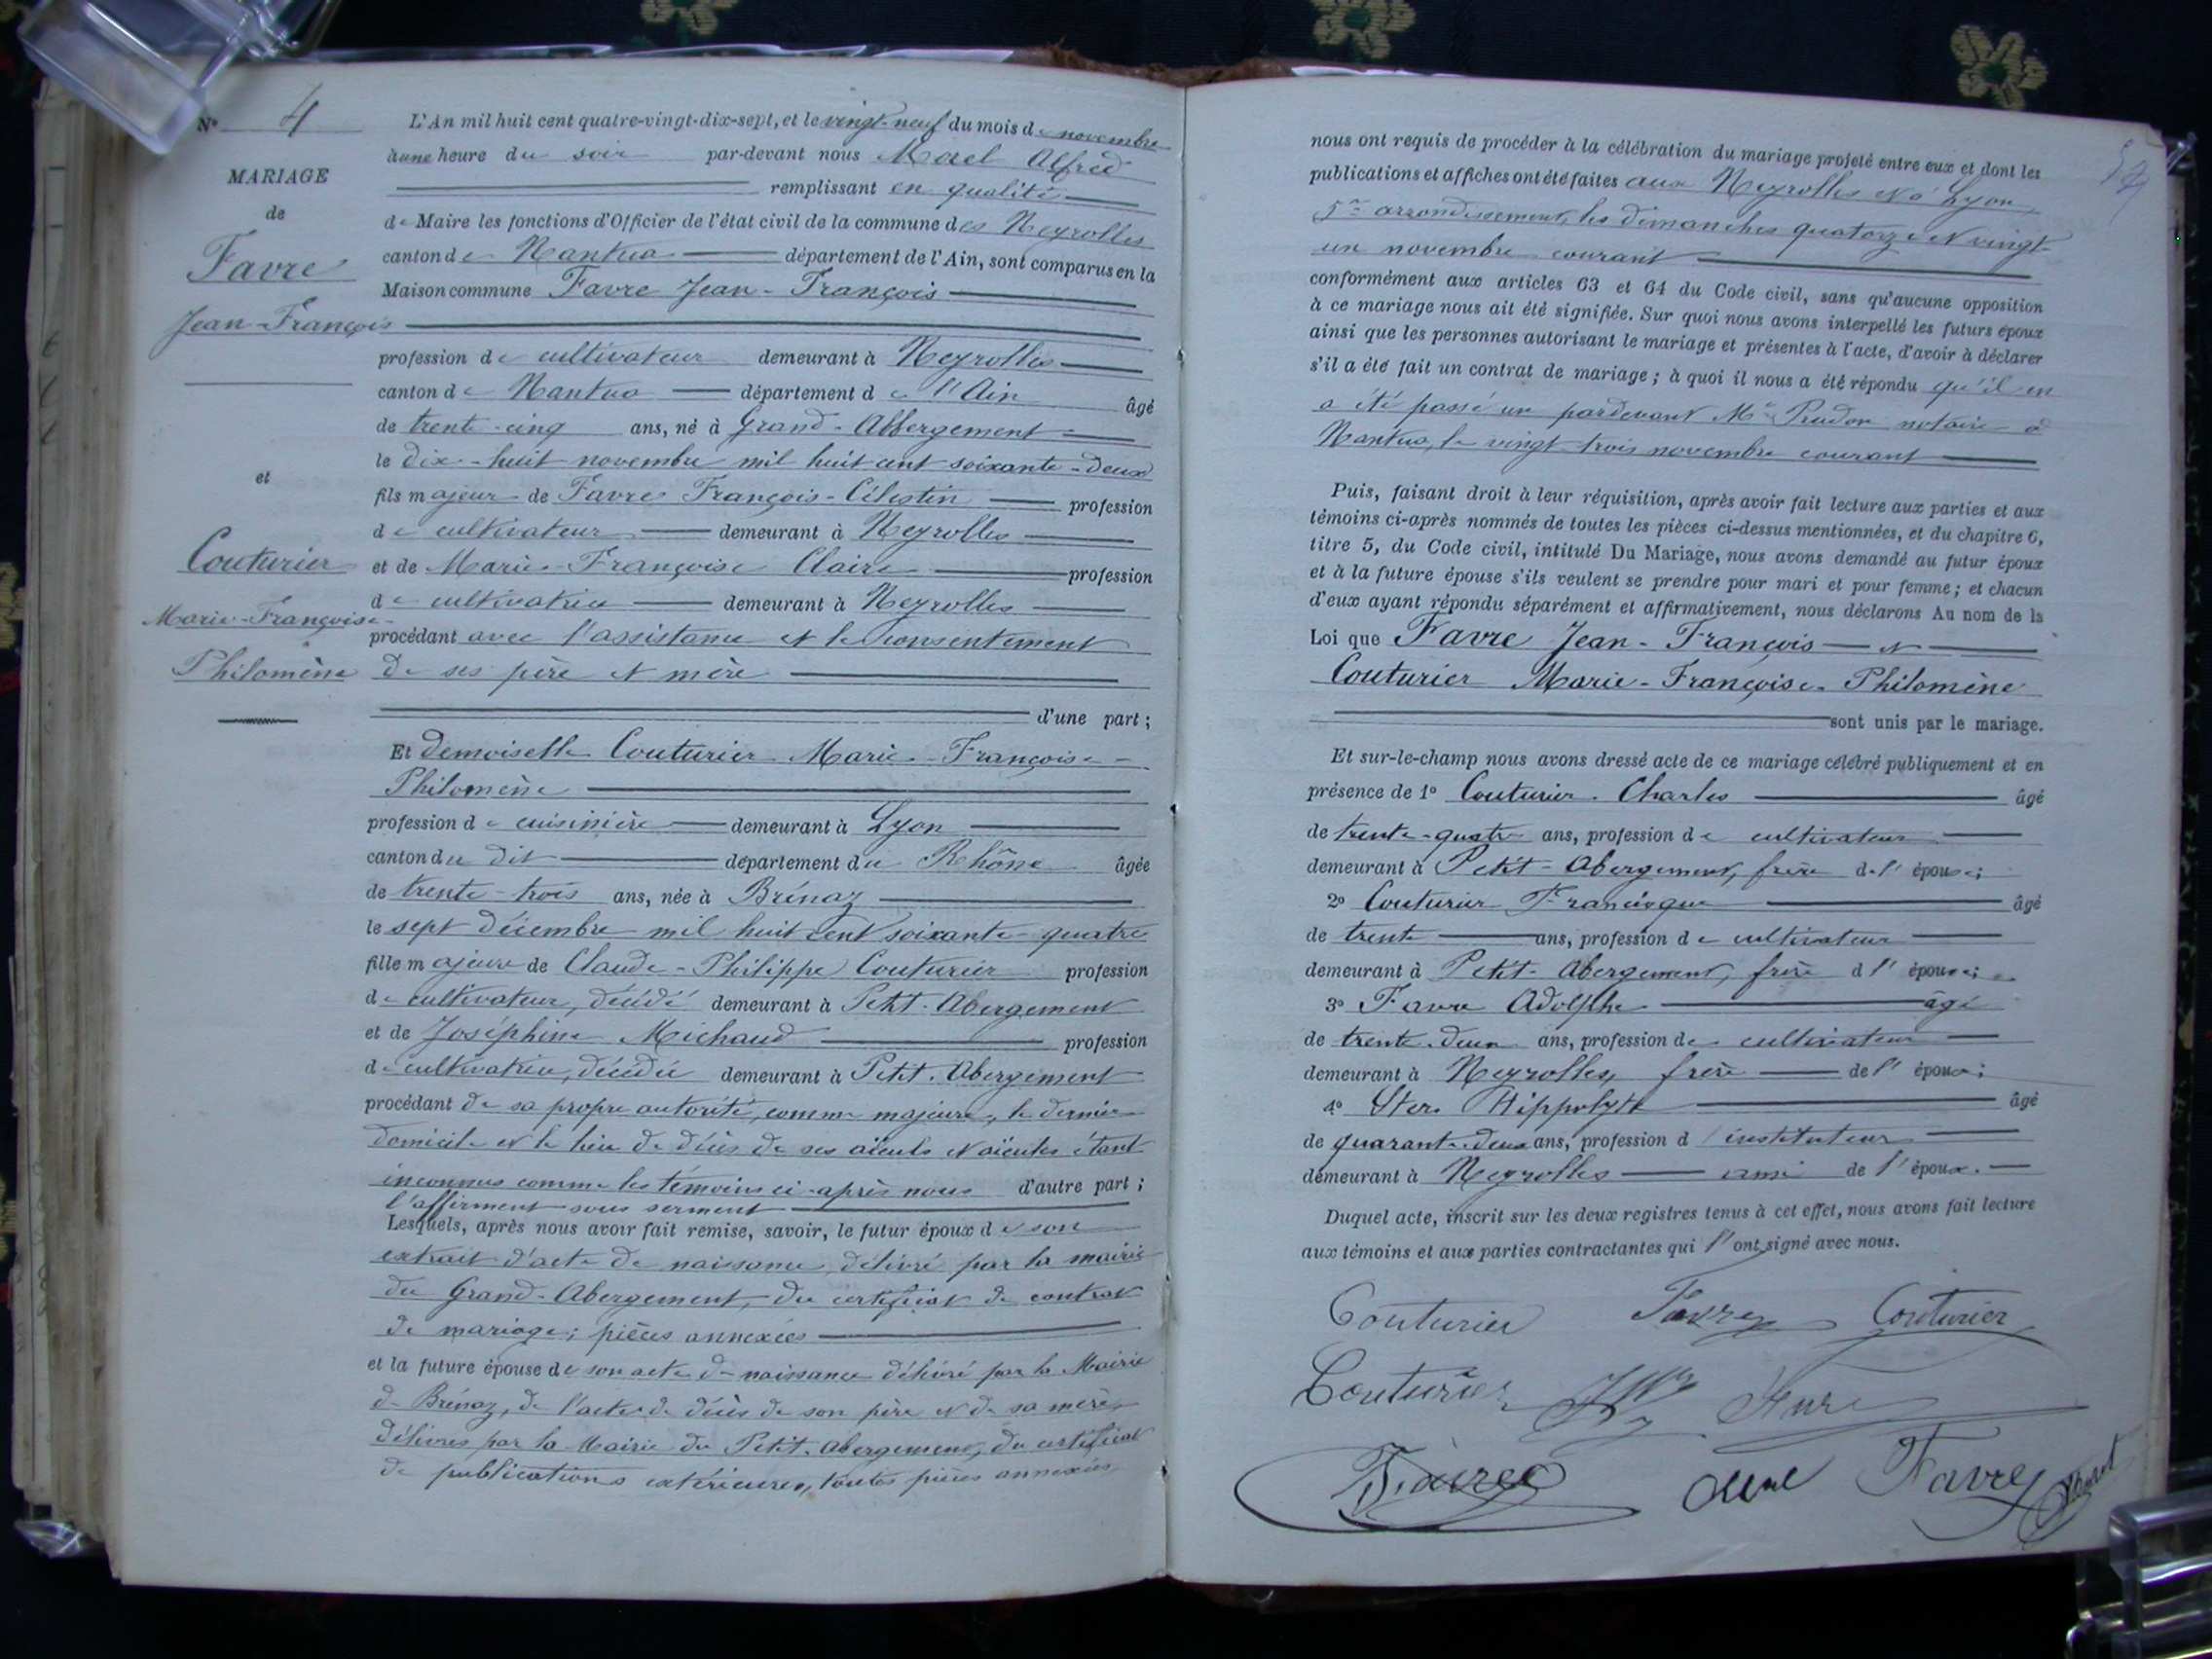 N° 4
MARIAGE
de
Favre
Jean-François
et
Couturier
Marie-Françoise-
Philomène
L'An mil huit cent quatre-vingt-dix-sept, et le vingt-neuf du mois de novembre
à une heure du soir par-devant nous Mael Alfred
remplissant en qualité
de Maire les fonctions d'Officier de l'état civil de la commune des Neyrolles
canton de Nantua département de l'Ain, sont comparus en la
Maison commune Favre Jean-François
profession de cultivateur demeurant à Neyrolles
canton de Nantua département de l'Ain âgé
de trente-cinq ans, né à Grand-Abbergement
le dix-huit novembre mil huit cent soixante-deux
fils majeur de Favre François-Célestin profession
de cultivateur demeurant à Neyrolles
et de Marie-Françoise Claire profession
de cultivatrice demeurant à Neyrolles
procédant avec l'assistance et le consentement
de ses père et mère
d'une part;
Et demoiselle Couturier Marie-Françoise-
Philomène
profession de cuisinière demeurant à Lyon
canton du dit département du Rhône âgée
de trente-trois ans, née à Brénaz
le sept décembre mil huit cent soixante-quatre
fille majeure de Claude-Philippe Couturier profession
de cultivateur, décédé demeurant à Petit-Abergement
et de Joséphine Michaud profession
de cultivatrice, décédée demeurant à Petit-Abergement
procédant de sa propre autorité, comme majeure, le dernier
domicile et le lieu de décès de ses aïeuls et aïeules étant
inconnus comme les témoins ci-après nous d'autre part;
l'affirment sous serment
Lesquels, après nous avoir fait remise, savoir, le futur époux de son
extrait d'acte de naissance, délivré par la mairie
du Grand-Abergement, du certificat de contrat
de mariage; pièces annexées
et la future épouse de son acte de naissance délivré par la Mairie
de Brénaz, de l'acte de décès de son père et de sa mère,
délivrés par la Mairie du Petit-Abergement, du certificat
de publications extérieures, toutes pièces annexées
nous ont requis de procéder à la célébration du mariage projeté entre eux et dont les
publications et affiches ont été faites aux Neyrolles et à Lyon,
5me arrondissement, les dimanches quatorze et vingt-
un novembre courant
conformément aux articles 63 et 64 du Code civil, sans qu'aucune opposition
à ce mariage nous ait été signifiée. Sur quoi nous avons interpellé les futurs époux
ainsi que les personnes autorisant le mariage et présentes à l'acte, d'avoir à déclarer
s'il a été fait un contrat de mariage; à quoi il nous a été répondu qu'il en
a été passé un pardevant Me Prudon notaire à
Nantua, le vingt-trois novembre courant
Puis, faisant droit à leur réquisition, après avoir fait lecture aux parties et aux
témoins ci-après nommés de toutes les pièces ci-dessus mentionnées, et du chapitre 6,
titre 5, du Code civil, intitulé Du Mariage, nous avons demandé au futur époux
et à la future épouse s'ils veulent se prendre pour mari et pour femme; et chacun
d'eux ayant répondu séparément et affirmativement, nous déclarons Au nom de la
Loi que Favre Jean-François et
Couturier Marie-Françoise-Philomène
sont unis par le mariage.
Et sur-le-champ nous avons dressé acte de ce mariage célébré publiquement et en
présence de 1° Couturier Charles âgé
de trente-quatre ans, profession de cultivateur
demeurant à Petit-Abergement, frère de l'épouse;
2° Couturier Francisque âgé
de trente ans, profession de cultivateur
demeurant à Petit-Abergement, frère d l'épouse;
3° Favre Adolphe âgé
de trente-deux ans, profession de cultivateur
demeurant à Neyrolles, frère de l'époux;
4° Hippolyte âgé
de quarante-deux ans, profession d'instituteur
demeurant à Neyrolles ami de l'époux.
Duquel acte, inscrit sur les deux registres tenus à cet effet, nous avons fait lecture
aux témoins et aux parties contractantes qui l'ont signé avec nous.
Couturier Favre Couturier
Couturier
Favre Mael Favre